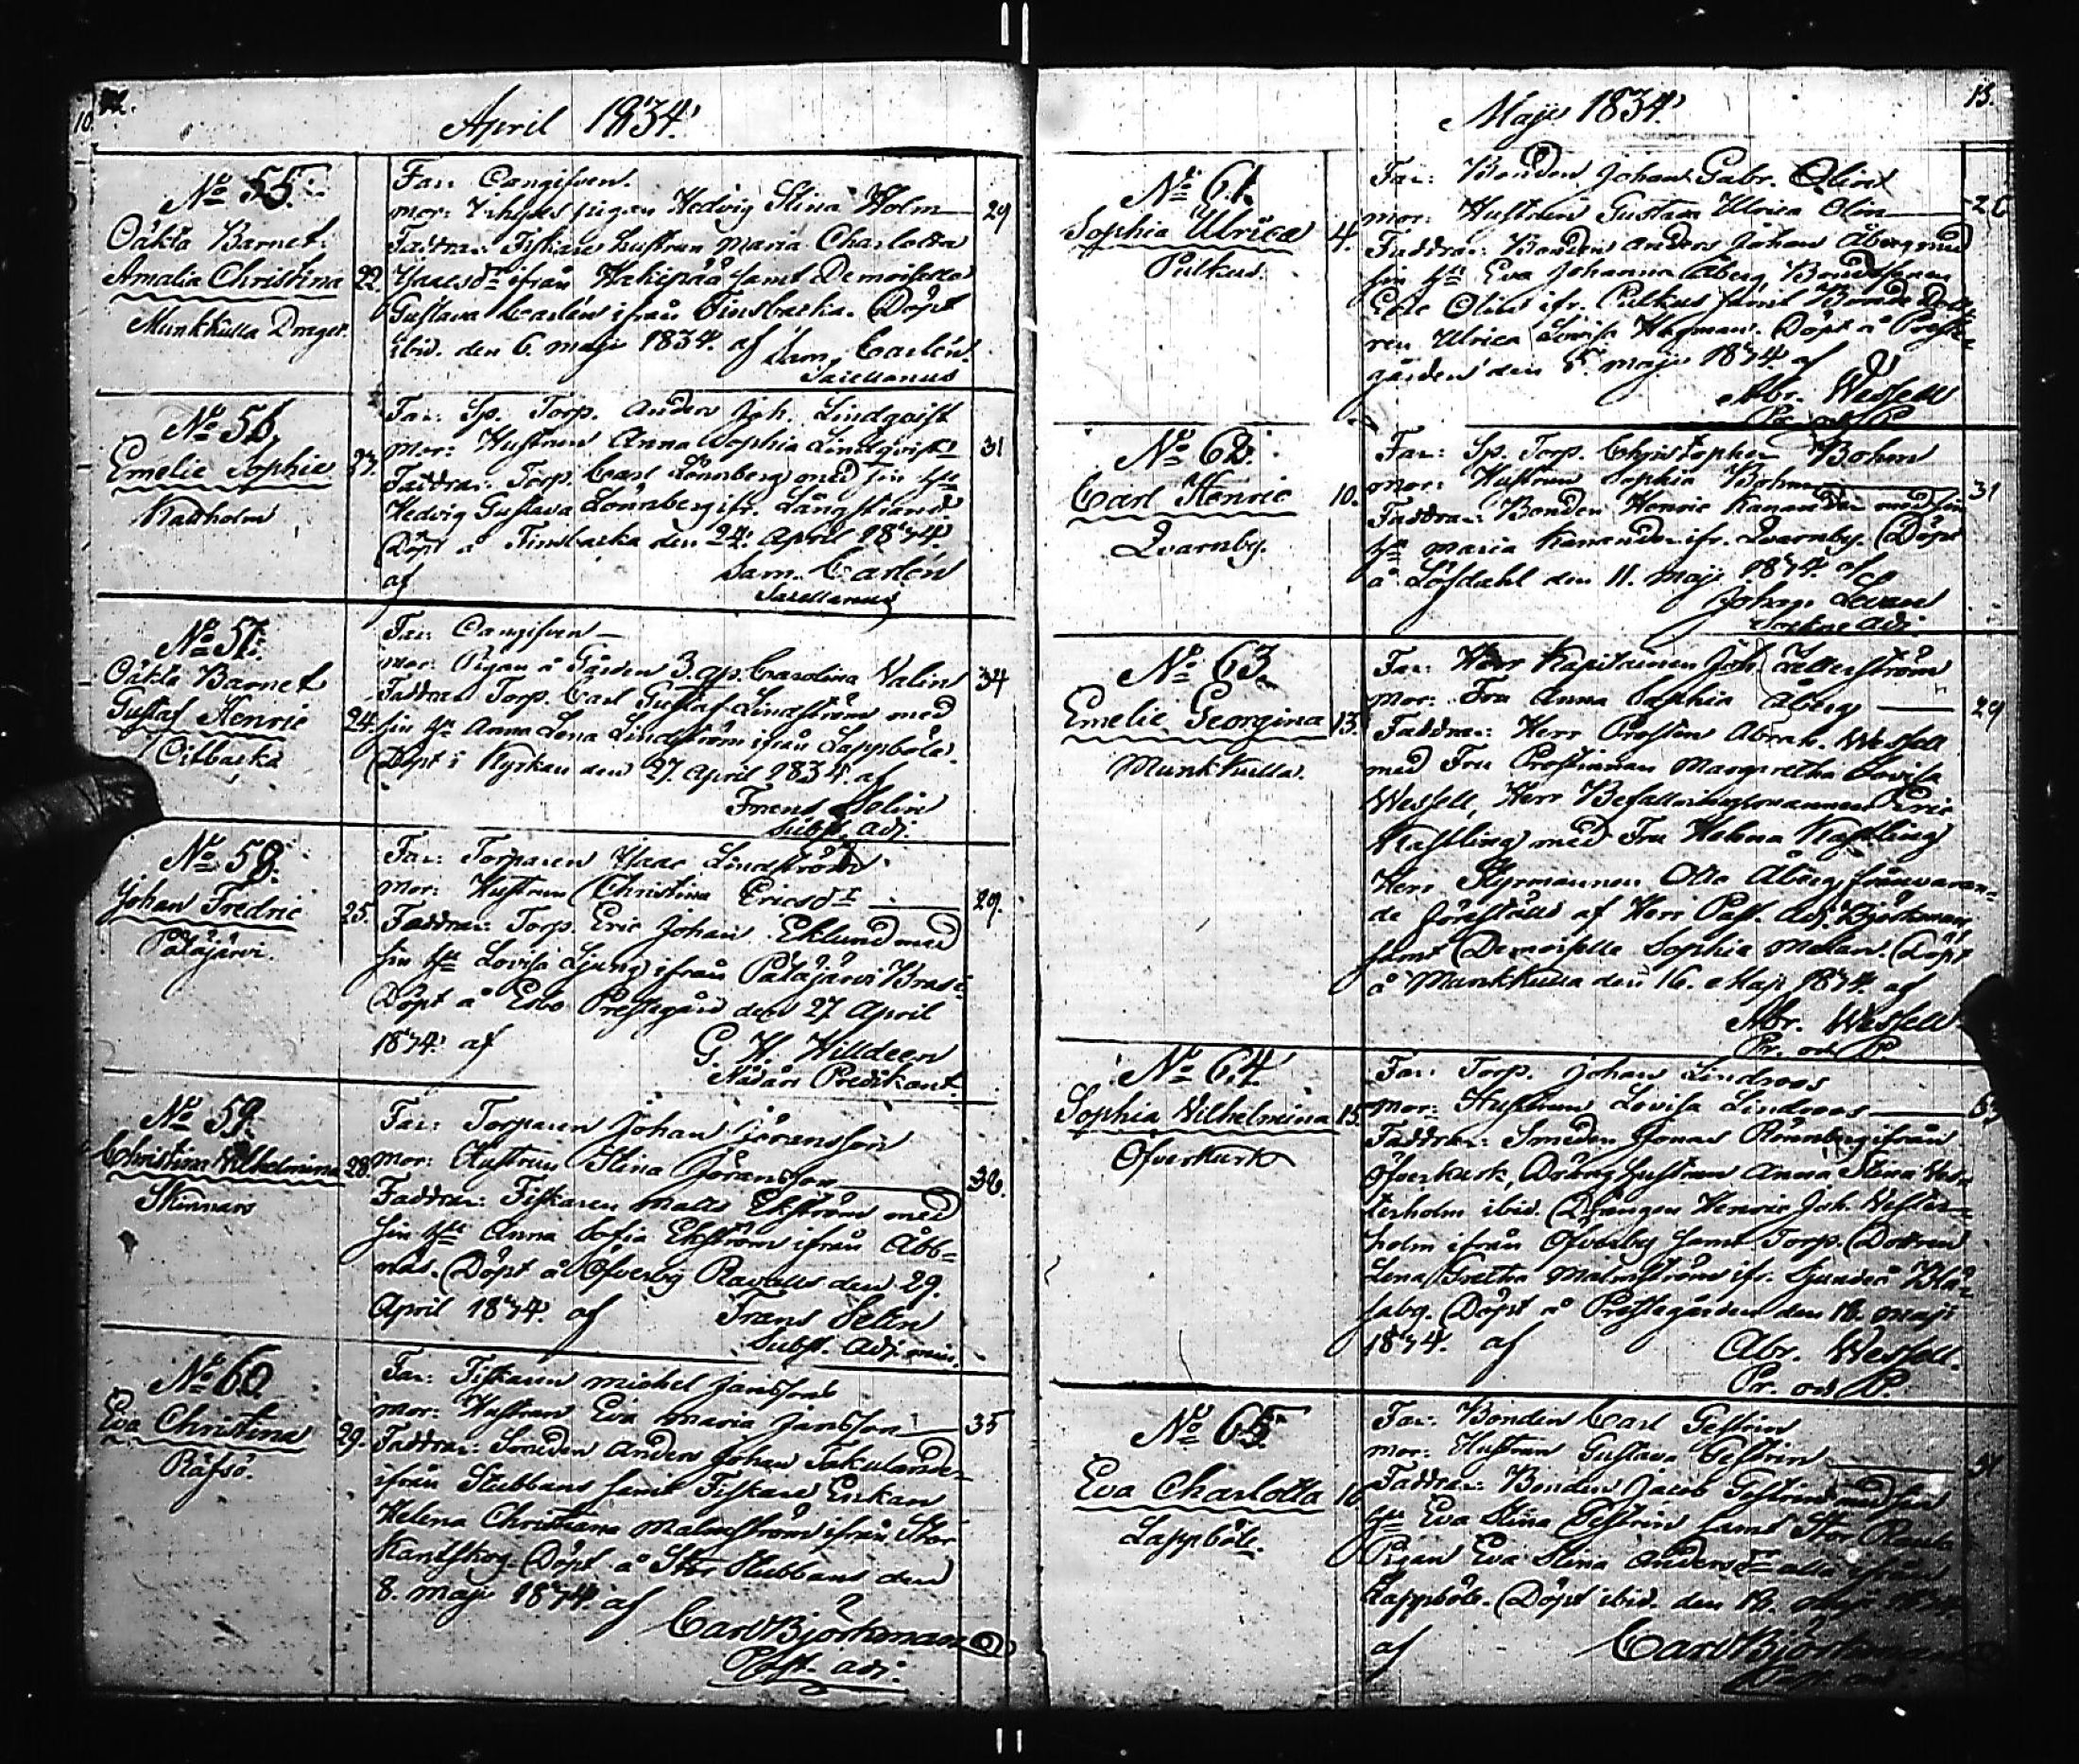 April 1834.
No 55.
Oäkta Barnet
Amalia Christina
Munkkulla Drager
22.
Far: Oangifven.
mor: pigan Hedvig Stina Holm
29
Faddrar: Fiskare hustrun Maria Charlotta
Isacsdr ifrån samt Demoiselle
Gustava Carlén ifrån Finsbacka. Döpt
ibid. den 6. maji 1834. af Sam. Carlén.
Sacellanus
No 56.
Emelie Sophie
Kattholm
23.
Far: Sp. Torp. Anders Joh. Lindqvist
mor: Hustrun Anna Sophia Lindqvist
31
Faddrar: Torp. Carl Lönnberg med sin Hu
Hedvig Gustava Lönnberg ifr. Långstrand
Döpt å Finsbacka den 24. April 1834.
af Sam. Carlén
Sacellanus
No 57.
Oäkta Barnet
Gustaf Henric
Bitbacka
24.
Far: Oangifven
mor: Pigan å Gården Carolina Valin
34
Faddrar Torp. Carl Gustaf Lindström med
sin Hu Anna Lena Lindström ifrån Lappböle.
Döpt i Kyrkan den 27. April 1834. af
Frans Selin
Subst. adj.
No 58.
Johan Fredric
Pålajärvi.
25.
Far: Torparen Isaac Lindström
mor: Hustrun Christina Ericsdr
29.
Faddrar: Torp. Eric Johan Eklund med
sin Hu Lovisa Ljung ifrån Pålajärvi
Döpt å Esbo Prestegård den 27 April
1834. af G. H. Willdeen
Nådårs Predikant.
No 59.
Christina Wilhelmina
Skinnars
28.
Far: Torparen Johan Göransson
mor: Hustrun Stina Göransson
38.
Faddrar: Fiskaren Matts Ekström med
sin Hu Anna Sofia Ekström ifrån Åbb-
näs. Döpt å Öfverby den 29.
April 1834. af Frans Selin
Subst. Adj. min.
No 60.
Eva Christina
Räfsö.
29.
Far: Fiskaren Michel Jansson
mor: Hustrun Eva Maria Jansson
35
Faddrar: Smeden Anders Johan
ifrån Stubbans samt Fiskare Enkan
Helena Christiana Malmström ifrån Stor
Kantskog. Döpt å Stor Stubbans den
8. maji 1834. af
Carl Björkman
Past. adj.
Maji 1834.
13.
No 61.
Sophia Ulrica
Pulkus.
4.
Far: Bonden Johan Gabr. Olin
mor: Hustrun Gustava Ulrica Olin
26
Faddrar: Bonden Anders Johan Åberg med
sin Hu Eva Johanna Åberg, Bondesonen
Olin ifr. Pulkus samt Bonde Dott-
ren Ulrica Lovisa Hagman. Döpt å Preste-
gården den 5. maji 1834. af
Abr. Wessell
Pr. och P.
No 62.
Carl Henric
Qvarnby.
10.
Far: Sp. Torp. Christopher Bohm
mor: Hustrun Sophia Bohm
31
Faddrar: Bonden Henric Kanander med sin
Hu Maria Kanander ifr. Qvarnby. Döpt
å Löfdahl den 11. maji 1834. af
Johan Levan
Sockne Adj.
No 63.
Emelie Georgina
Munkkulla.
13.
Far: Herr Kapitainen Joh. Zetterström
mor: Fru Anna Sophia Åberg
29
Faddrar: Herr Prosten Abrah. Wessell
med Fru Prostinnan Margaretha Lovisa
Wessell, Herr Befallningsmannen Eric
Kastling med Fru Helena Kastling
Herr Styrmannen Otto Åberg frånvaran-
de föreställd af Herr Past. Adj. Björkman
samt Demoiselle Sophia Melan. Döpt
å Munkkulla den 16. Maji 1834. af
Abr. Wessell
Pr. och P.
No 64.
Sophia Wilhelmina
Öfverkurk
15.
Far: Torp. Johan Lindroos
mor: Hustrun Lovisa Lindroos
Faddrar: Smeden Jonas Rönnberg ifrån
Öfverkurk, Dräng hustrun Anna Stina Wes-
terholm ibid. Drängen Henric Joh. Wester-
holm ifrån Öfverby samt Torp. Dottren
Lena Gretha Malmström ifr. Sjundeå
Döpt å Prestegården den 18. maji
1834. af Abr. Wessell.
Pr. och P.
No 65.
Eva Charlotta
Lappböle.
Far: Bonden Carl Gestrin
mor: Hustrun Gustava Gestrin
31
Faddrar: Bonden Jacob Gestrin med sin
Hu Eva Stina Gestrin samt Stor
Pigan Eva Stina Andersdr alla ifrån
Lappböle. Döpt ibid. den 18. Maji 1834.
af Carl Björkman